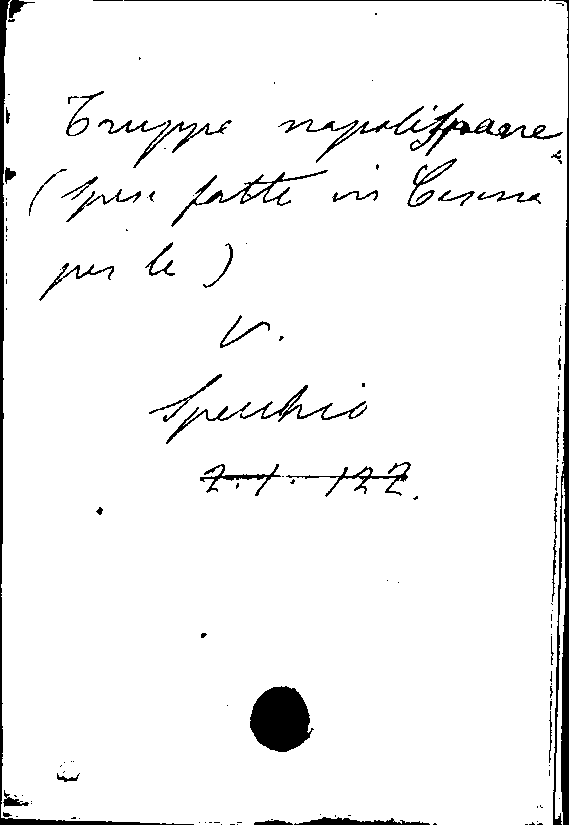 Truppe napolispane
(spese fatte in Cesena
per le)
V.
Specchio
2.1.122.